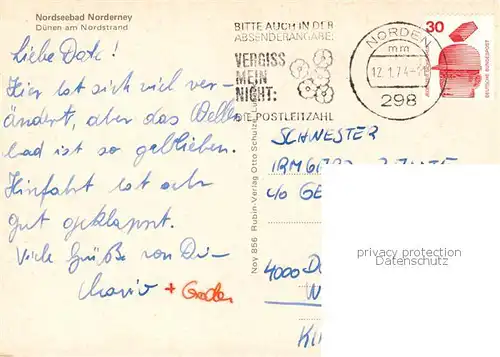 Nordseebad Norderney
Dünen am Nordstrand
Liebe Dote!
Hier ist sich viel ver-
ändert, aber das Wellen
bad ist so geblieben.
Hinfahrt ist sehr
gut geklappt.
Viele Grüße von Dir
Noy 856 Rubin-Verlag Otto Schulze
BITTE AUCH IN DER
ABSENDERANGABE:
VERGISS
MEIN
NICHT:
DIE POSTLEITZAHL
NORDEN
mm
12.1.74
298
30
DEUTSCHE BUNDESPOST
SCHWESTER
IRMGARD
c/o GE
4000 D
W
privacy protection
Datenschutz